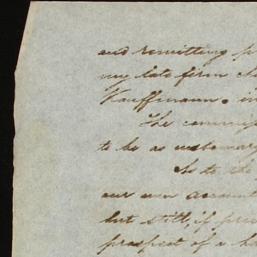 and remitting
my late firm
Kauffmann. in
The commiss
to be as customary
As to the
our own account
but still, if pric
prospect of a ha